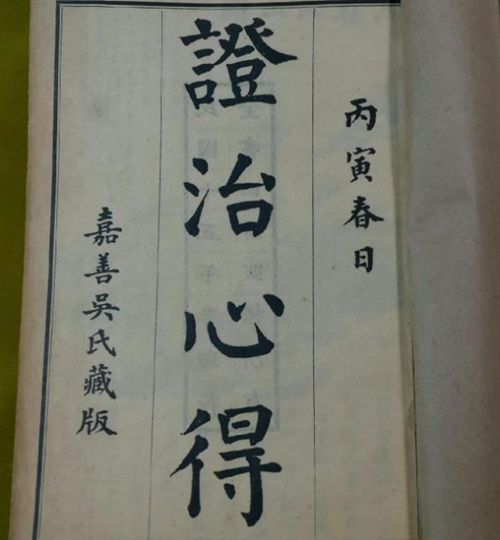 丙寅春日
證治心得
嘉善吳氏藏版